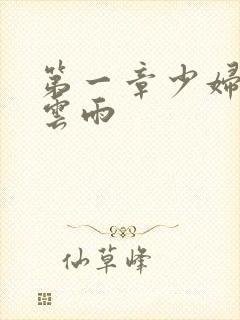 第一章少婦
雲雨
仙草峰